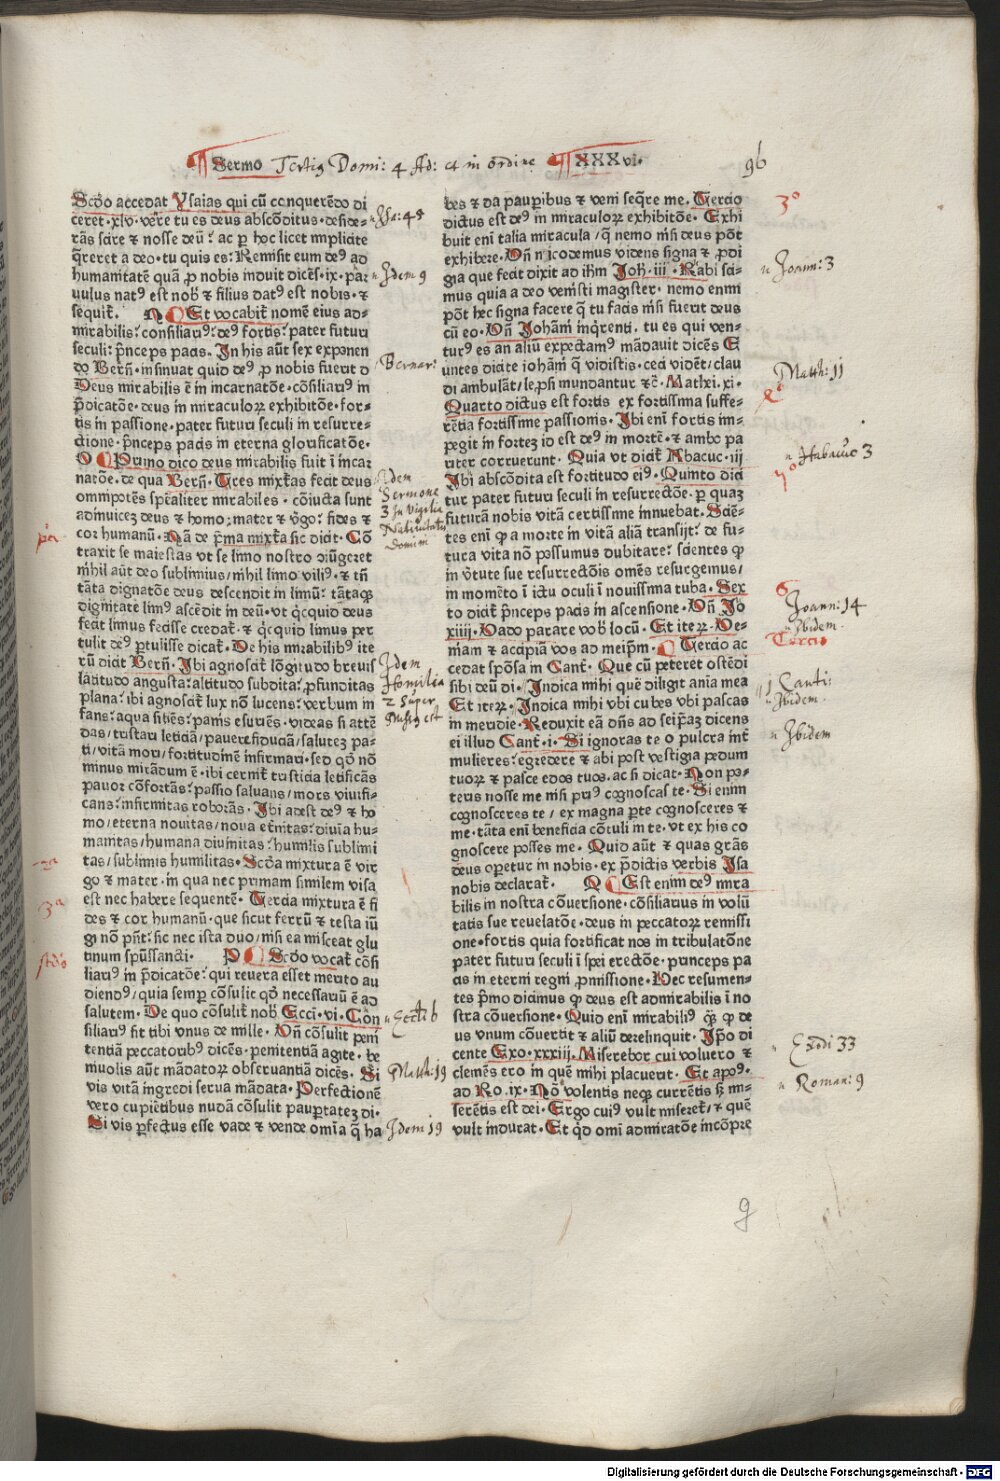 Sermo Tertius Domi: 4 Ad: et in ordine XXXvi.
96
Scďo accedat Ysaias qui cū conquerēdo di
ceret·xlv·vere tu es deus abscōditus·deside-
rās scire ⁊ nosse deū: ac ꝑ hoc licet implicite
q̄reret a deo·tu quis es: Remisit eum deꝰ ad
humanitatē quā ꝓ nobis induit dicēs·ix·par
uulus natꝰ est nob̄ ⁊ filius datꝰ est nobis·⁊
sequit̄. Et vocabit̄ nomē eius ad-
mirabilis: consiliariꝰ: deꝰ fortis: pater futuri
seculi: p̄nceps pacis. In his aūt sex exponen
do Bern̄·insinuat quid deꝰ ꝓ nobis fuerit
Deus mirabilis ē in incarnatōe·cōsiliariꝰ in
p̄dicatōe·deus in miraculoꝝ exhibitōe·for-
tis in passione·pater futuri seculi in resurre-
ctione·p̄nceps pacis in eterna glorificatōe.
Primo dico deus mirabilis fuit ī incar
natōe·de qua Bern̄. Tres mixt̄as fecit deus
omnipotēs sp̄ealiter mirabiles·cōiucta sunt
adinuicez deus ⁊ homo: mater ⁊ v̄go: fides ⁊
cor humanū. Nā de p̄ma mixt̄a sic dicit·Cō
traxit se maiestas vt se limo nostro cōiūgeret
mihil aūt deo sublimius/nihil limo viliꝰ·⁊ tn̄
tāta dignatōe deus descendit in limū: tātaqꝫ
dignitate limꝰ ascēdit in deū·vt qͥcquid deus
fecit limus fecisse credat̄·⁊ qͥcquid limus per
tulit deꝰ ꝑtulisse dicat̄. De his mirabilibꝰ ite
rū dicit Bern̄. Ibi agnoscat̄ lōgitudo breuis
latitudo angusta: altitudo subdita: ꝓfunditas
plana: ibi agnoscat̄ lux nō lucens: verbum in
fans: aqua sitiēs: panis esuriēs·videas si attē
das/tristari leticiā/pauere fiduciā/salutez pa-
ti/vitā mori/fortitudinē infirmari·sed qď nō
minus mirādum ē·ibi cernit̄ tristicia letificās
pauor cōfortās: passio saluans/mors viuifi-
cans: infirmitas roborās. Ibi adest deꝰ ⁊ ho
mo/eterna nouitas/noua et̄nitas: diuīa hu-
manitas/humana diuinitas: humilis sublimi
tas/sublimis humilitas. Scďa mixtura ē vir
go ⁊ mater·in qua nec primam similem visa
est nec habere sequentē. Tercia mixtura ē fi
des ⁊ cor humanū·que sicut ferrū ⁊ testa iū
gi nō pn̄t: sic nec ista duo/nisi ea misceat glu
tinum spūssancti. Scďo vocat̄ cōsi
liariꝰ in p̄dicatōe: qui reuera esset merito au
diendꝰ/quia semꝑ cōsulit qď necessariū ē ad
salutem. De quo cōsulit nob̄ Ecci·vi·Con
siliariꝰ sit tibi vnus de mille. Vn̄ cōsulit peni
tentiā peccatoribꝰ dicēs·penitentiā agite·be
niuolis aūt mādatoꝝ obseruantiā dicēs. Si
vis vitā ingredi serua mādata. Perfectionē
vero cupiētibus nudā cōsulit pauꝑtatez di.
Si vis ꝑfectus esse vade ⁊ vende omīa q̄ ha
bes ⁊ da pauꝑibus ⁊ veni seq̄re me. Tercio
dictus est deꝰ in miraculoꝝ exhibitōe. Exhi
buit enī talia miracula/q̄ nemo nisi deus pōt
exhibere. Vn̄ nicodemus videns signa ⁊ ꝓdi
gia que fecit dixit ad ihm̄ Joh̄·iii·Rabi sci-
mus quia a deo venisti magister·nemo enim
pōt hec signa facere q̄ tu facis nisi fuerit deus
cū eo. Vn̄ Johām̄ inq̄renti·tu es qui ven-
turꝰ es an aliū expectamꝰ mādauit dicēs E
untes dicite johām̄ q̄ vidistis·ceci vidēt/clau
di ambulāt/leꝓsi mundantur ⁊c̄. Math·xi.
Quarto dictus est fortis ex fortissima suffe-
rētia fortissime passionis. Ibi enī fortis im-
pegit in fortez id est deꝰ in mortē·⁊ ambo pa
riter corruerunt. Quia vt dicit̄ Abacuc·iij
Ibi abscōdita est fortitudo eiꝰ. Quinto dici
tur pater futuri seculi in resurrectōe·ꝑ quaz
futurā nobis vitā certissime innuebat. Sciē-
tes enī ꝙ a morte in vitā aliā transijt: de fu-
tura vita nō possumus dubitare: scientes ꝙ
in v̄tute sue resurrectōis omēs resurgemus/
in momēto ī ictu oculi ī nouissima tuba. Sex
to dicit̄ p̄nceps pacis in ascensione. Vn̄ Jo
xiiij. Vado parare vob̄ locū. Et iteꝝ. Ve-
niam ⁊ accipiā vos ad meip̄m. Tercio ac
cedat spōsa in Cant̄. Que cū peteret ostēdi
sibi deū di. Indica mihi quē diligit aīa mea
Et iteꝝ. Indica mihi vbi cubes vbi pascas
in meridie. Reduxit eā dn̄s ad seip̄az dicens
ei illud Cant̄·i·Si ignoras te o pulcra int̄
mulieres: egredere ⁊ abi post vestigia pedum
tuoꝝ ⁊ pasce edos tuos. ac si dicat. Non po-
teris nosse me nisi priꝰ cognoscas te. Si enim
cognosceres te/ex magna ꝑte cognosceres ⁊
me·tāta enī beneficia cōtuli in te·vt ex his co
gnoscere posses me. Quid aūt ⁊ quas grās
deus oꝑetur in nobis·ex p̄dictis verbis Isa
nobis declarat̄. Est enim deꝰ mira
bilis in nostra cōuersione·cōsiliarius in volū
tatis sue reuelatōe·deus in peccatoꝝ remissi
one·fortis quia fortificat nos in tribulatōne
pater futuri seculi ī spei erectōe·princeps pa
cis in eterni regni ꝓmissione. Hec resumen-
tes p̄mo dicimus ꝙ deus est admirabilis ī no
stra cōuersione. Quid enī mirabiliꝰ qͣꝫ ꝙ de
us vnum cōuertit ⁊ aliū derelinquit. Ip̄o di
cente Exo·xxxiij·Miserebor cui voluero ⁊
clemēs ero in quē mihi placuerit. Et apoꝰ.
ad Ro·ix·Nō volentis neqꝫ currētis sꝫ mi-
serētis est dei·Ergo cuiꝰ vult miseret̄/⁊ quē
vult indurat. Et qď omī admiratōe incōpre
Isa: 45
Idem 9
Bernar:
Idem
Sermone
3 In Vigilia
Natiuitatis
Domini
Idem
Homilia
2 Super
Missus est
Eccli 6
Matth: 19
Idem 19
pͣ
2ͣ
3ͣ
scďo
3º
Joann: 3
Matth: 11
Habacuc 3
6
Joann: 14
Ibidem
Tercio
1 Canti:
Ibidem
Ibidem
Exodi 33
Roman: 9
g
Digitalisierung gefördert durch die Deutsche Forschungsgemeinschaft - DFG